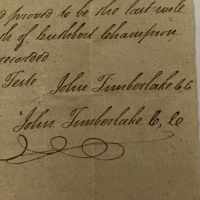 d proved to be the last will
th of Cuthbert Champion
recorded
Teste John Timberlake CC
John Timberlake C, Co